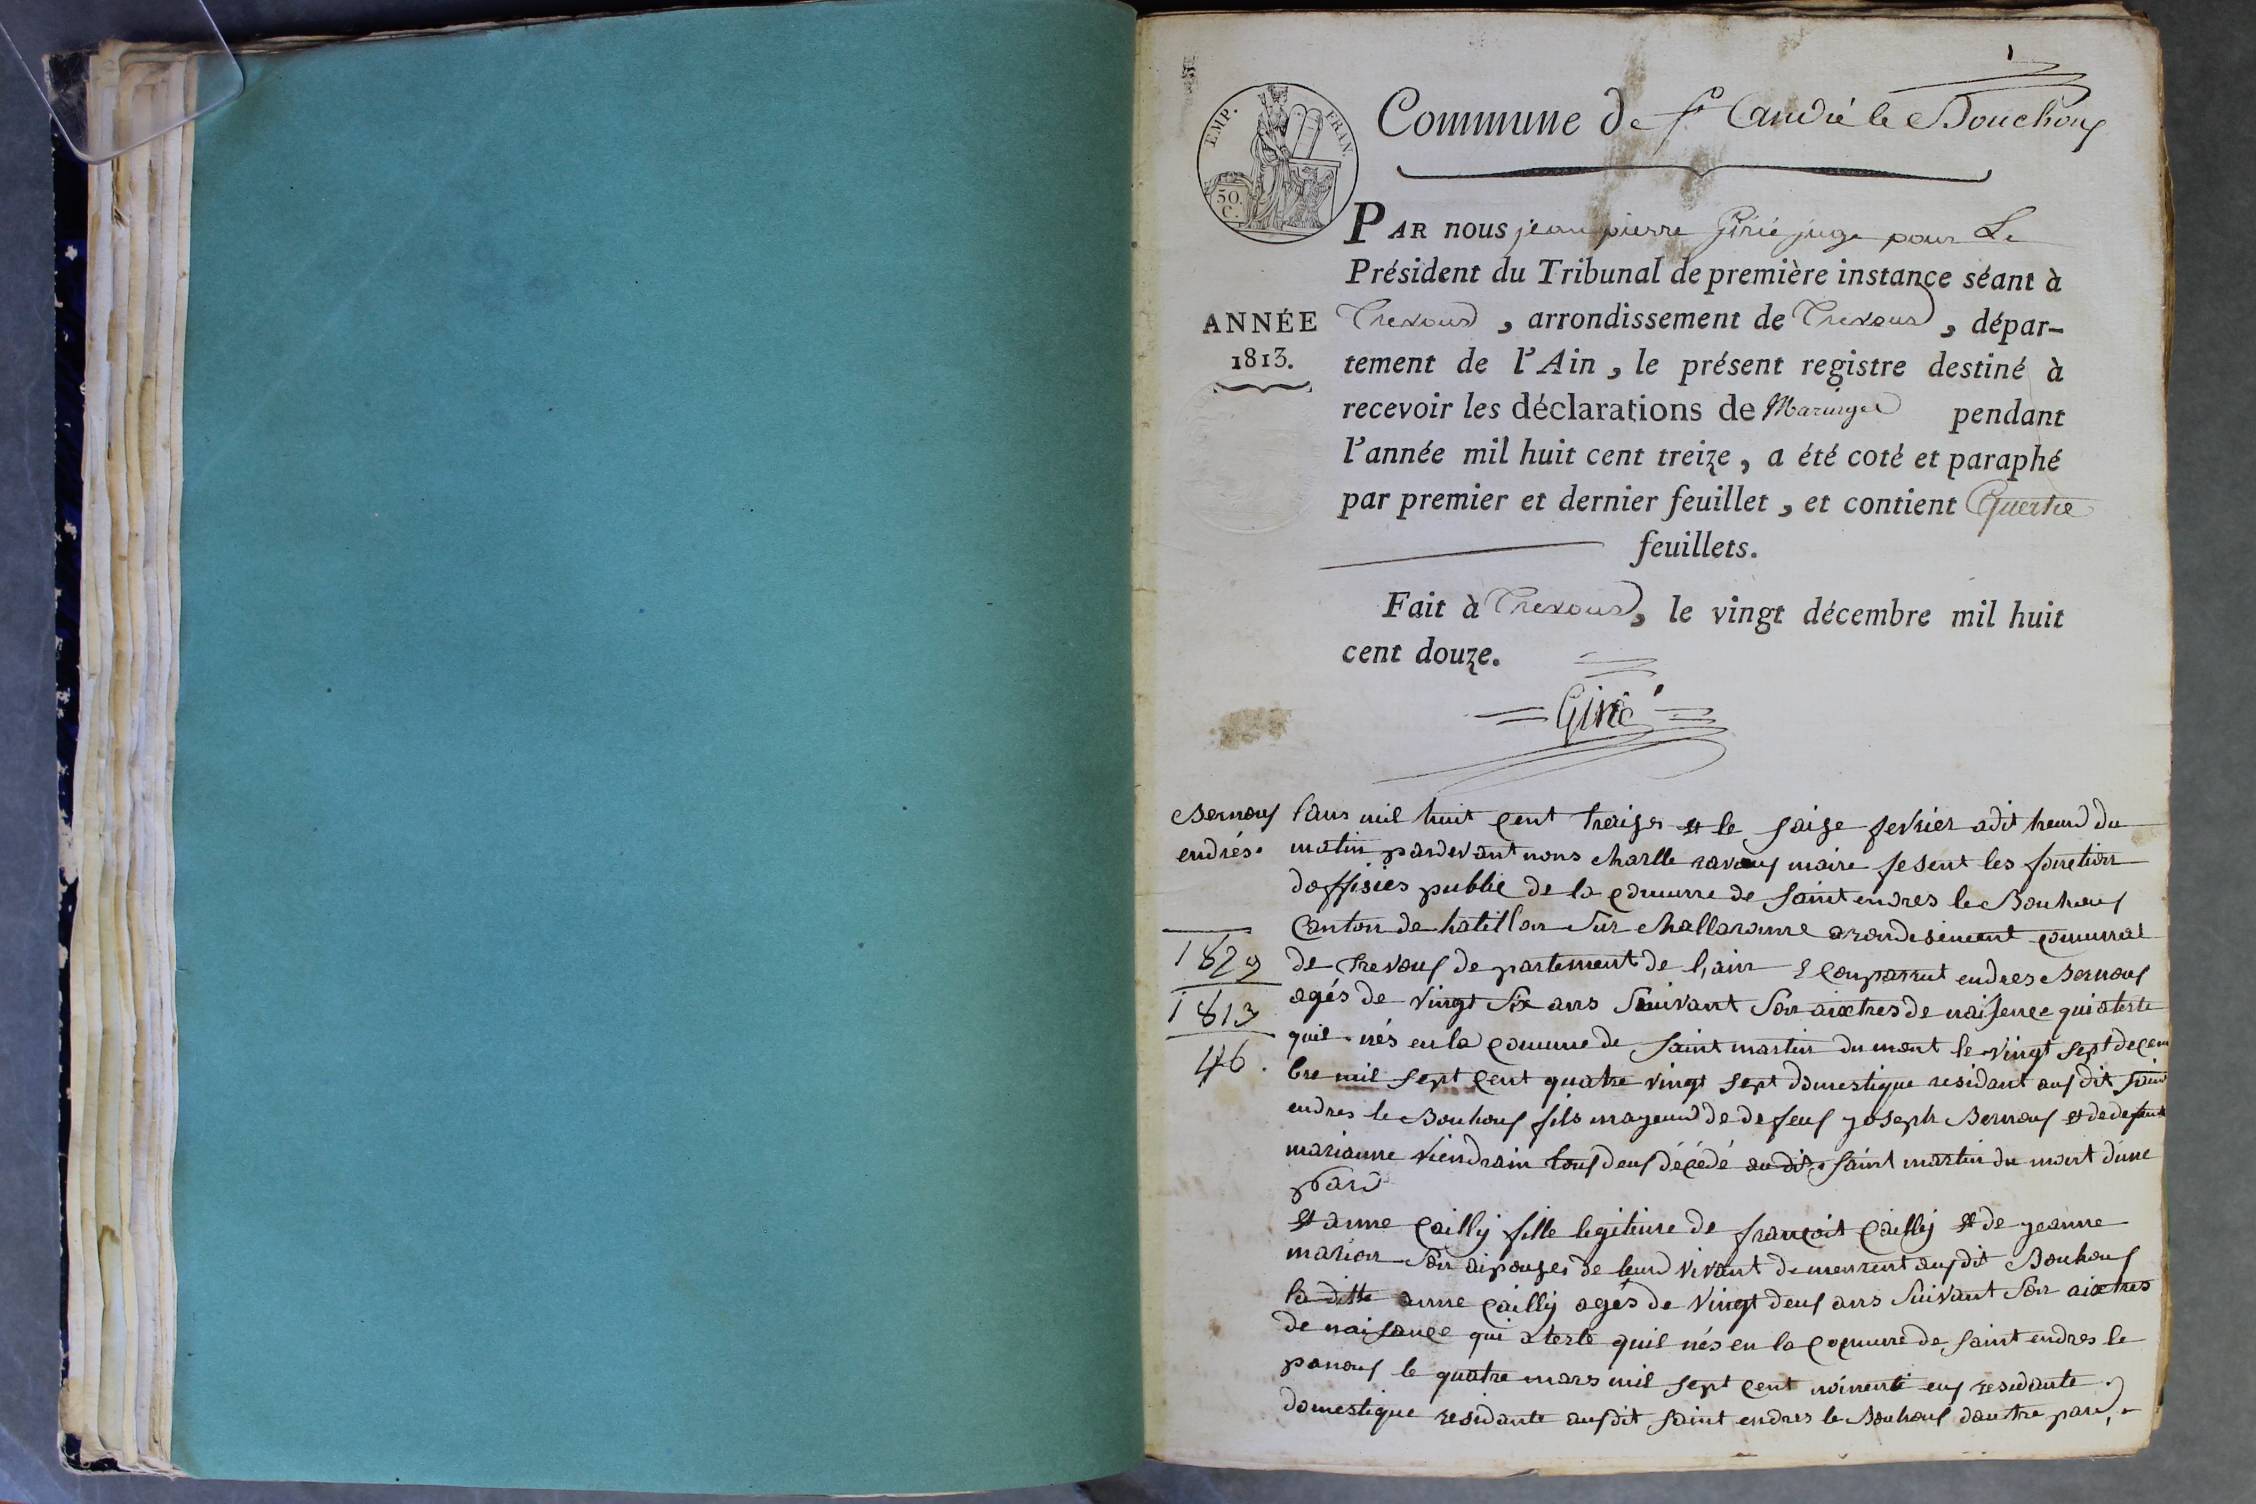 1
EMP. FRAN.
50.
C.
Commune de St André le Bouchoux
PAR nous jean pierre Girié juge pour Le
Président du Tribunal de première instance séant à
ANNÉE
1813.
Trevoux, arrondissement de Trevoux, dépar-
tement de l'Ain, le présent registre destiné à
recevoir les déclarations de Mariages pendant
l'année mil huit cent treize, a été coté et paraphé
par premier et dernier feuillet, et contient Quatre
feuillets.
Fait à Trevoux, le vingt décembre mil huit
cent douze.
Girié
Bernouf
endrés.
1829
1813
46.
l'ans mil huit cent traize et le saize fevrier a dit heurd du
matin pardevant nous charlle ravouf maire fesent les fonction
doffisies publie de la comunne de saint endres le Bouhouf
Canton de hatillon sur challaronne arondisement comunnal
de trevouf departement de l,ain é comparrut endres Bernouf
agés de vingt six ans suivant son aixtres de naisence qui ateste
quil nés en la comune de saint martin du mont le vingt sept decem
bre mil sept cent quatre vingt sept domestique residant auf dit saint
endres le Bouhouf fils mayeurd de defeuf yoseph Bernouf et de defunte
marianne viendrain tous deuf décédé au dit saint martin du mont dune
pard
et anne Cailly fille legitime de françoit Cailly et de yeanne
marion son aipouzes de leurd vivant demeurent auf dit Bouhouf
la ditte anne Cailly agés de vingt deuf ans suivant son aixtres
de naisance qui ateste quil nés en la comune de saint endres le
panouf le quatre mars mil sept cent nonente euf residante
domestique residante auf dit saint endres le Bouhouf dautre pard,